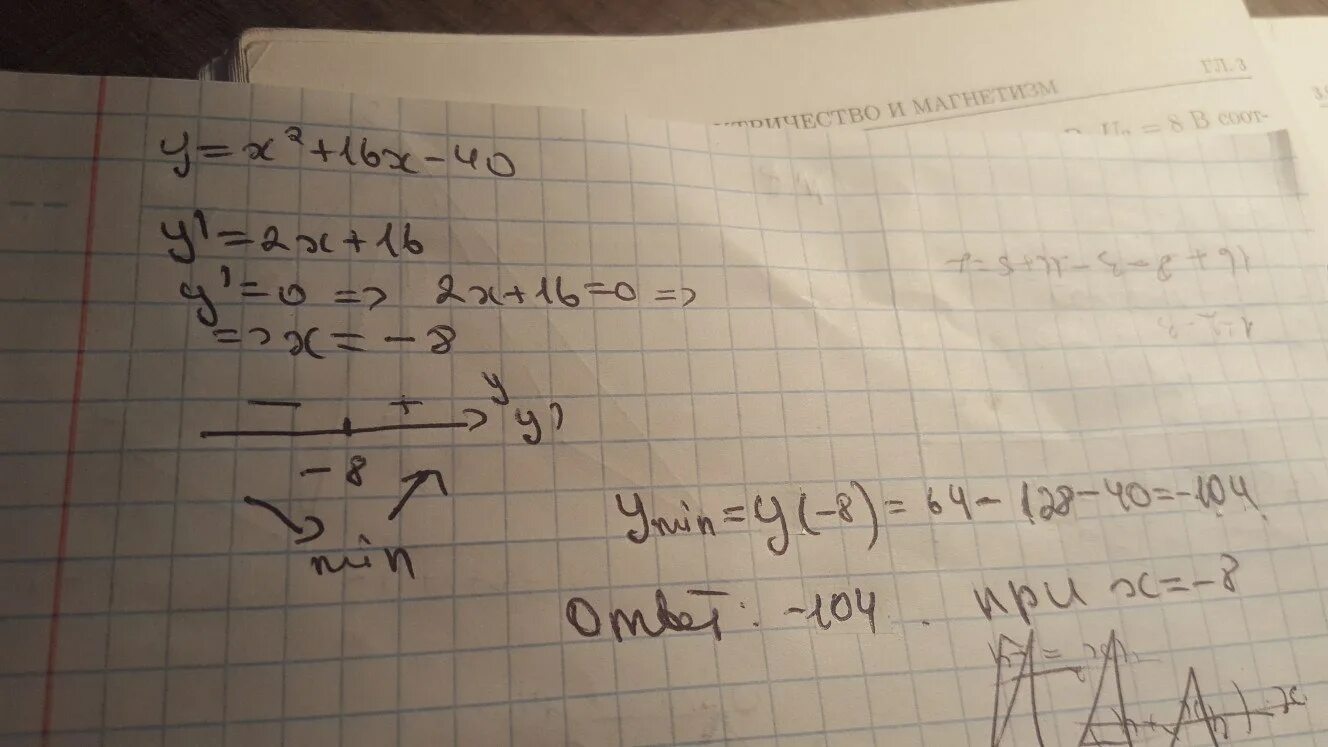 ГЛ. 3
ТРИЧЕСТВО И МАГНЕТИЗМ
= 8 В соот-
y = x² + 16x - 40
y' = 2x + 16
y' = 0 => 2x + 16 = 0 =>
=> x = - 8
- + y
y'
- 8
min
y min = y (-8) = 64 - 128 - 40 = -104
Ответ: -104. при x = -8